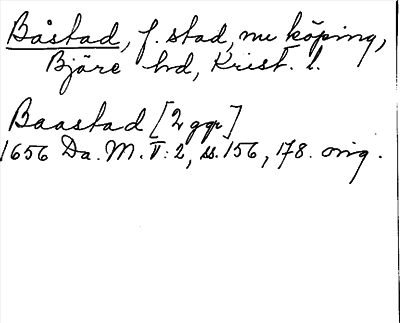 Båstad, f. stad, nu köping,
Bjäre hd, Krist. l.
Baastad [2 ggr]
1656 Da. M. V: 2, ss. 156, 178. orig.